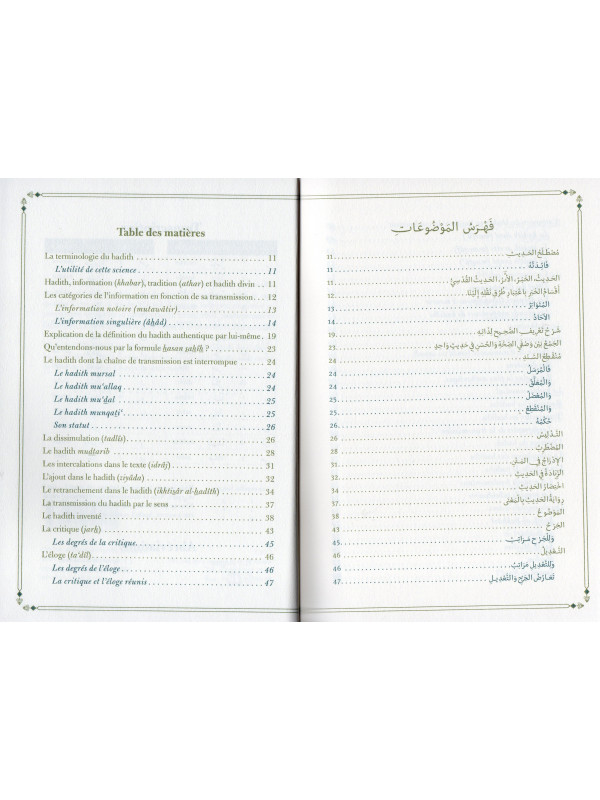 Table des matières
La terminologie du hadith 11
L'utilité de cette science 11
Hadith, information (khabar), tradition (athar) et hadith divin 11
Les catégories de l'information en fonction de sa transmission 12
L'information notoire (mutawâtir) 13
L'information singulière (âḥâd) 14
Explication de la définition du hadith authentique par lui-même 19
Qu'entendons-nous par la formule ḥasan ṣaḥîḥ ? 23
Le hadith dont la chaîne de transmission est interrompue 24
Le hadith mursal 24
Le hadith mu'allaq 24
Le hadith mu'ḍal 25
Le hadith munqaṭi' 25
Son statut 26
La dissimulation (tadlîs) 26
Le hadith muḍtarib 28
Les intercalations dans le texte (idrâj) 31
L'ajout dans le hadith (ziyâda) 32
Le retranchement dans le hadith (ikhtiṣâr al-ḥadîth) 34
La transmission du hadith par le sens 37
Le hadith inventé 38
La critique (jarḥ) 43
Les degrés de la critique 45
L'éloge (ta'dîl) 46
Les degrés de l'éloge 46
La critique et l'éloge réunis 47
فَهْرَسُ المَوْضُوعَاتِ
مُصْطَلَحُ الحَدِيثِ 11
فَائِدَتُهُ 11
الحَدِيثُ، الخَبَرُ، الأَثَرُ، الحَدِيثُ القُدْسِيُّ 11
أَقْسَامُ الخَبَرِ بِاعْتِبَارِ طُرُقِ نَقْلِهِ إِلَيْنَا 12
المُتَوَاتِرُ 13
الآحَادُ 14
شَرْحُ تَعْرِيفِ الصَّحِيحِ لِذَاتِهِ 19
الجَمْعُ بَيْنَ وَصْفَيِ الصِّحَّةِ وَالحُسْنِ فِي حَدِيثٍ وَاحِدٍ 23
مُنْقَطِعُ السَّنَدِ 24
فَالمُرْسَلُ 24
وَالمُعَلَّقُ 24
وَالمُعْضَلُ 25
وَالمُنْقَطِعُ 25
حُكْمُهُ 26
التَّدْلِيسُ 26
المُضْطَرِبُ 28
الإِدْرَاجُ فِي المَتْنِ 31
الزِّيَادَةُ فِي الحَدِيثِ 32
اخْتِصَارُ الحَدِيثِ 34
رِوَايَةُ الحَدِيثِ بِالمَعْنَى 37
المَوْضُوعُ 38
الجَرْحُ 43
وَلِلْجَرْحِ مَرَاتِبُ 45
التَّعْدِيلُ 46
وَلِلتَّعْدِيلِ مَرَاتِبُ 46
تَعَارُضُ الجَرْحِ وَالتَّعْدِيلِ 47